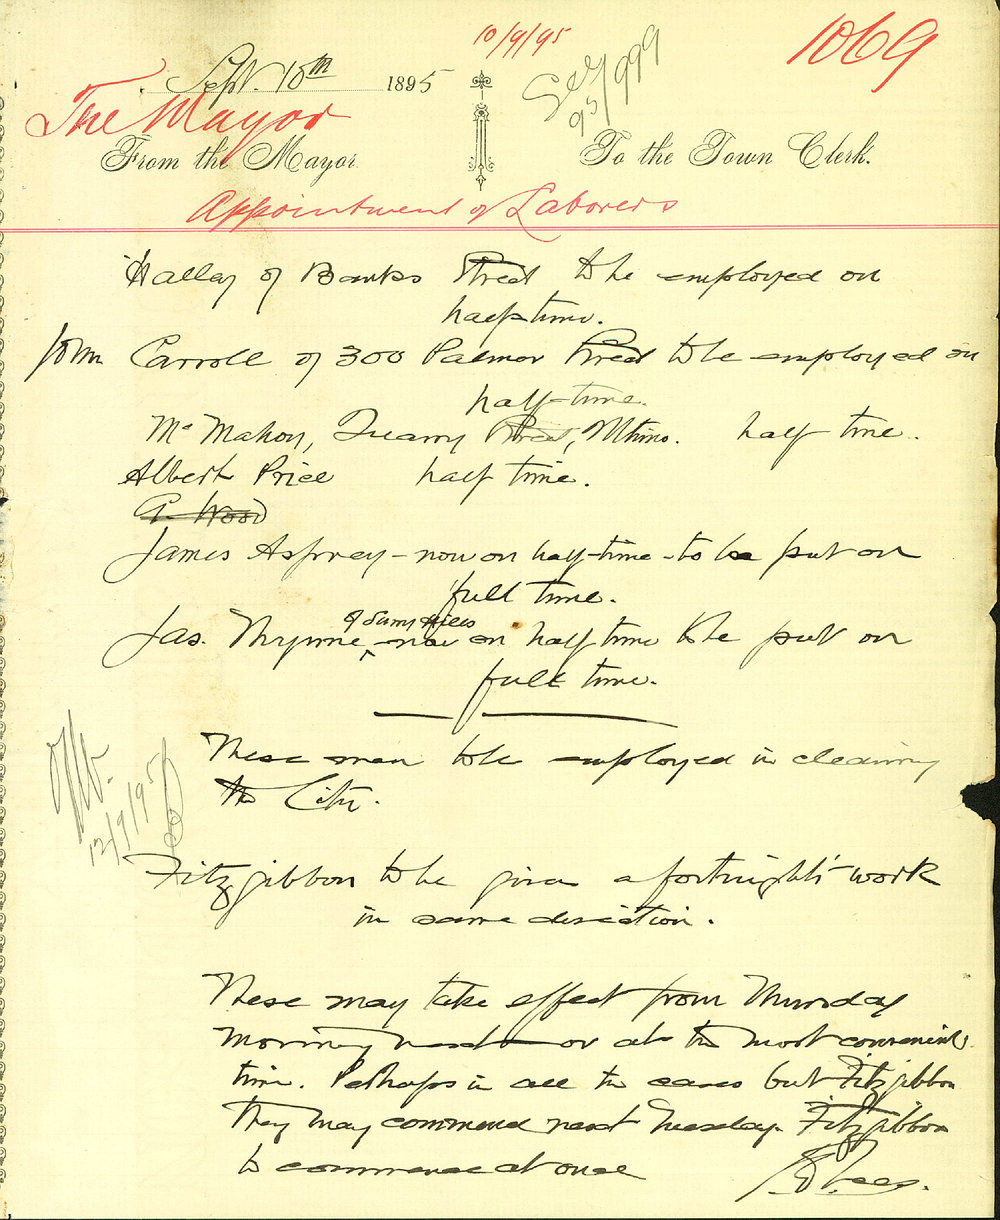 10/9/95
1069
See 95/999
Sept. 10th 1895
The Mayor
From the Mayor.
To the Town Clerk.
Appointment of Laborers
Halley of Banks Street to be employed on
half time.
John Carroll of 300 Palmer Street to be employed on
half-time.
McMahon, Quarry Street, Ultimo. half time.
Albert Price half time.
G. Wood
James Asprey - now on half-time - to be put on
full time.
Jas. Thynne, of Surry Hills now on half time to be put on
full time.
These men to be employed in cleaning
the City.
12/9/95
Fitzgibbon to be given a fortnight's work
in same direction.
These may take effect from Thursday
morning next or at the most convenient
time. Perhaps in all the cases but Fitzgibbon
they may commence next Tuesday. Fitzgibbon
to commence at once